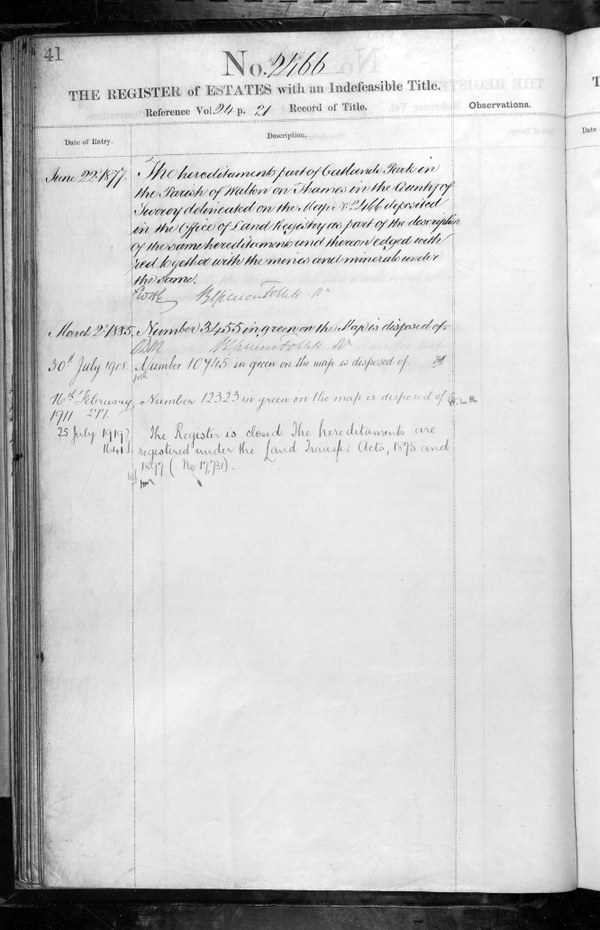 41
No. 2466
THE REGISTER of ESTATES with an Indefeasible Title.
Reference Vol. 24 p. 21 Record of Title.
Observations.
Date of Entry.
Description.
June 22d 1877
The hereditaments part of Oatlands Park in
the Parish of Walton on Thames in the County of
Surrey delineated on the Map No. 2466 deposited
in the Office of Land Registry as part of the description
of the same hereditaments and thereon edged with
red together with the mines and minerals under
the same.
March 2d 1885.
Number 3455 in green on the Map is disposed of.
30th July 1908.
Number 10745 in green on the map is disposed of
16th February
1911 271.
Number 12323 in green on the map is disposed of
25 July 1919
1641
The Register is closed The hereditaments are
registered under the Land Transfer Acts, 1875 and
1897 (No 17,731).